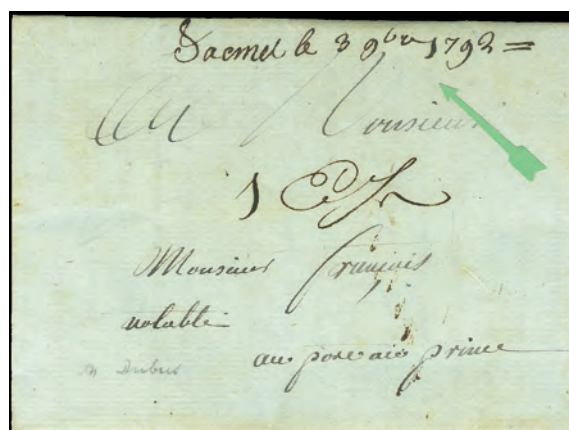 Jacmel le 3 9bre 1792 =
A Monsieur
Monsieur français
notable
au port au prince